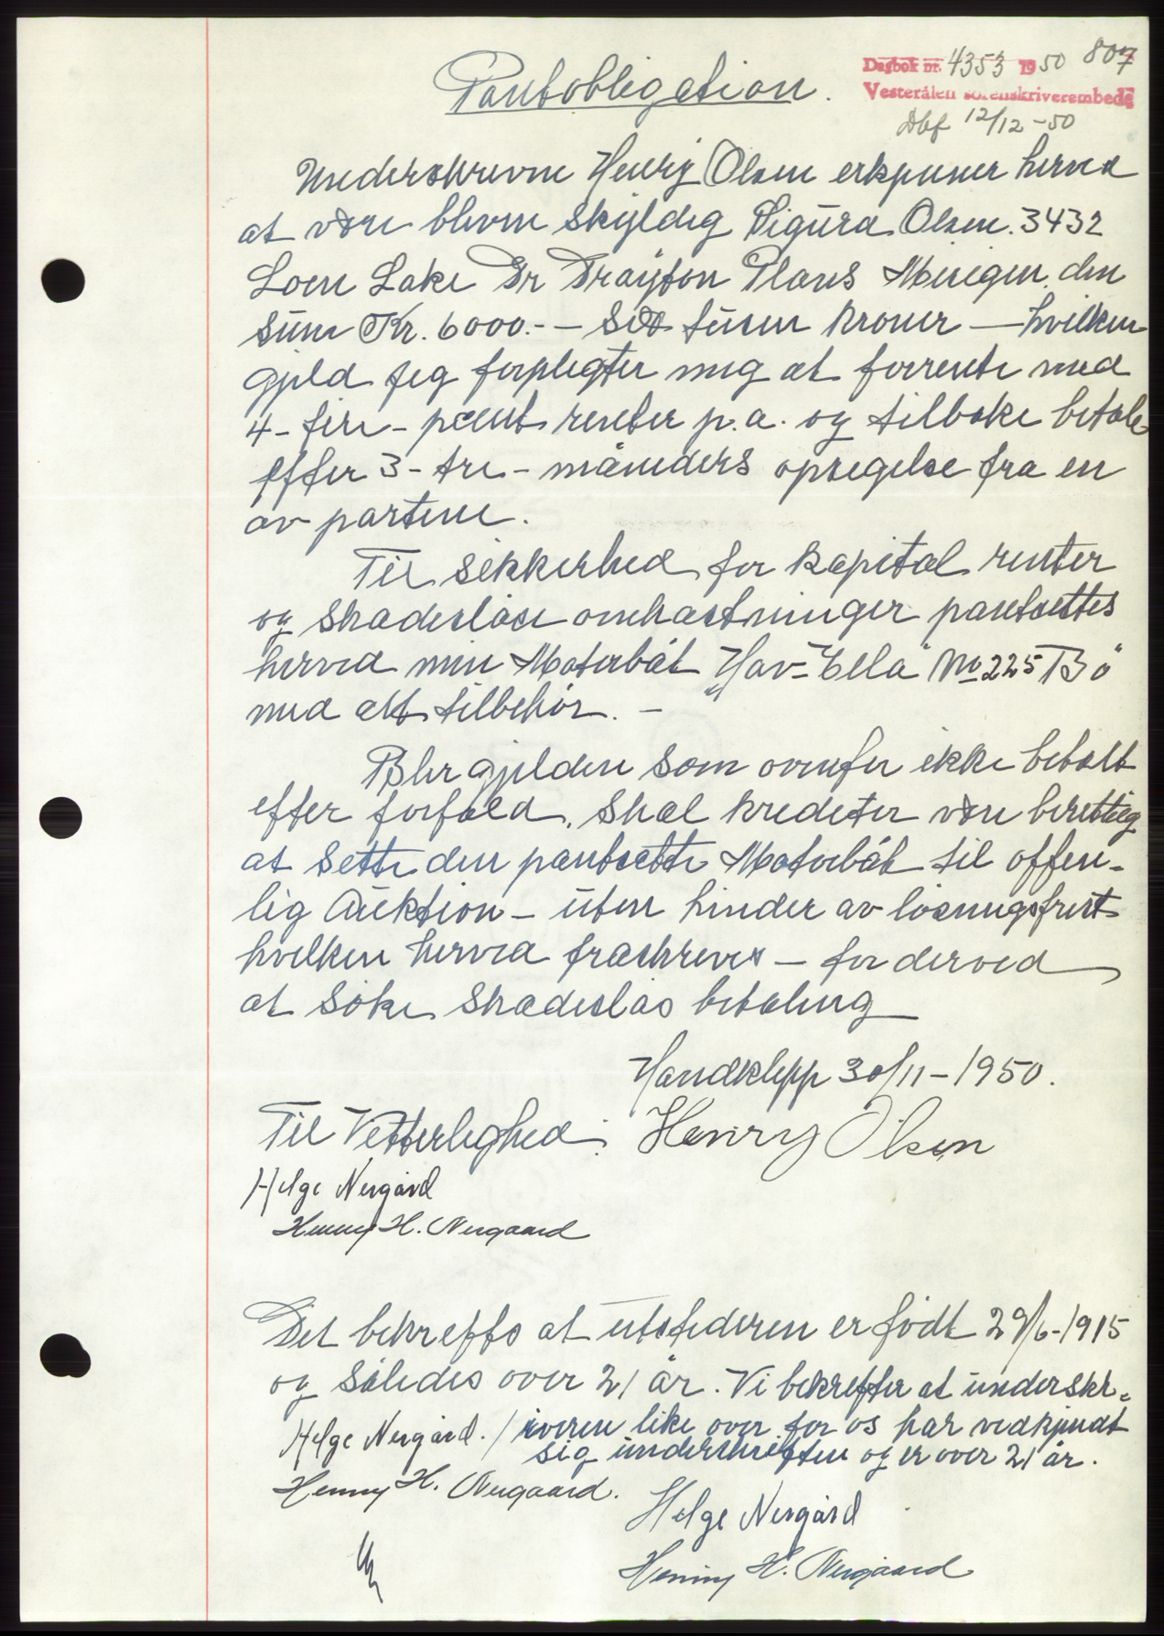 Pantobligation.
Dagbok nr. 4353 1950 807
Vesterålen sorenskriverembede
Dbf 12/12-50
Underskrevne Henry Olsen erkjenner herved
at være bleven skyldig Sigurd Olsen. 3432
Loen Lake Dr Drayton Plans den
sum Kr. 6000.- — seks tusen kroner — hvilken
gjeld jeg forpligter mig at forrente med
4 - fire - procent renter p.a. og tilbake betale
efter 3 - tre - måneders opsegelse fra en
av partene.
Til sikkerhed for kapital renter
og skadesløse omkostninger pantsettes
herved min Motorbåt "Hav-Ella" No 225 Bö
med alt tilbehör. —
Blir gjelden som ovenfor ikke betalt
efter forfald, skal kreditor være berettig
at sette den pantsette Motorbåt til offen-
lig Auktion — uten hinder av løsningsfrist
hvilken herved fraskrives — for derved
at søke skadesløs betaling
Handklepp 30/11-1950.
Til Vitterlighed: Henry Olsen
Helge Nergård
Henny H. Nergaard
Det bekreftes at utstederen er född 29/6-1915
og således over 21 år. Vi bekrefter at underskr-
Helge Nergård. / iveren like over for os har vedkjendt
sig underskriften og er over 21 år.
Henny H. Nergaard.
Helge Nergård
Henny H. Nergaard